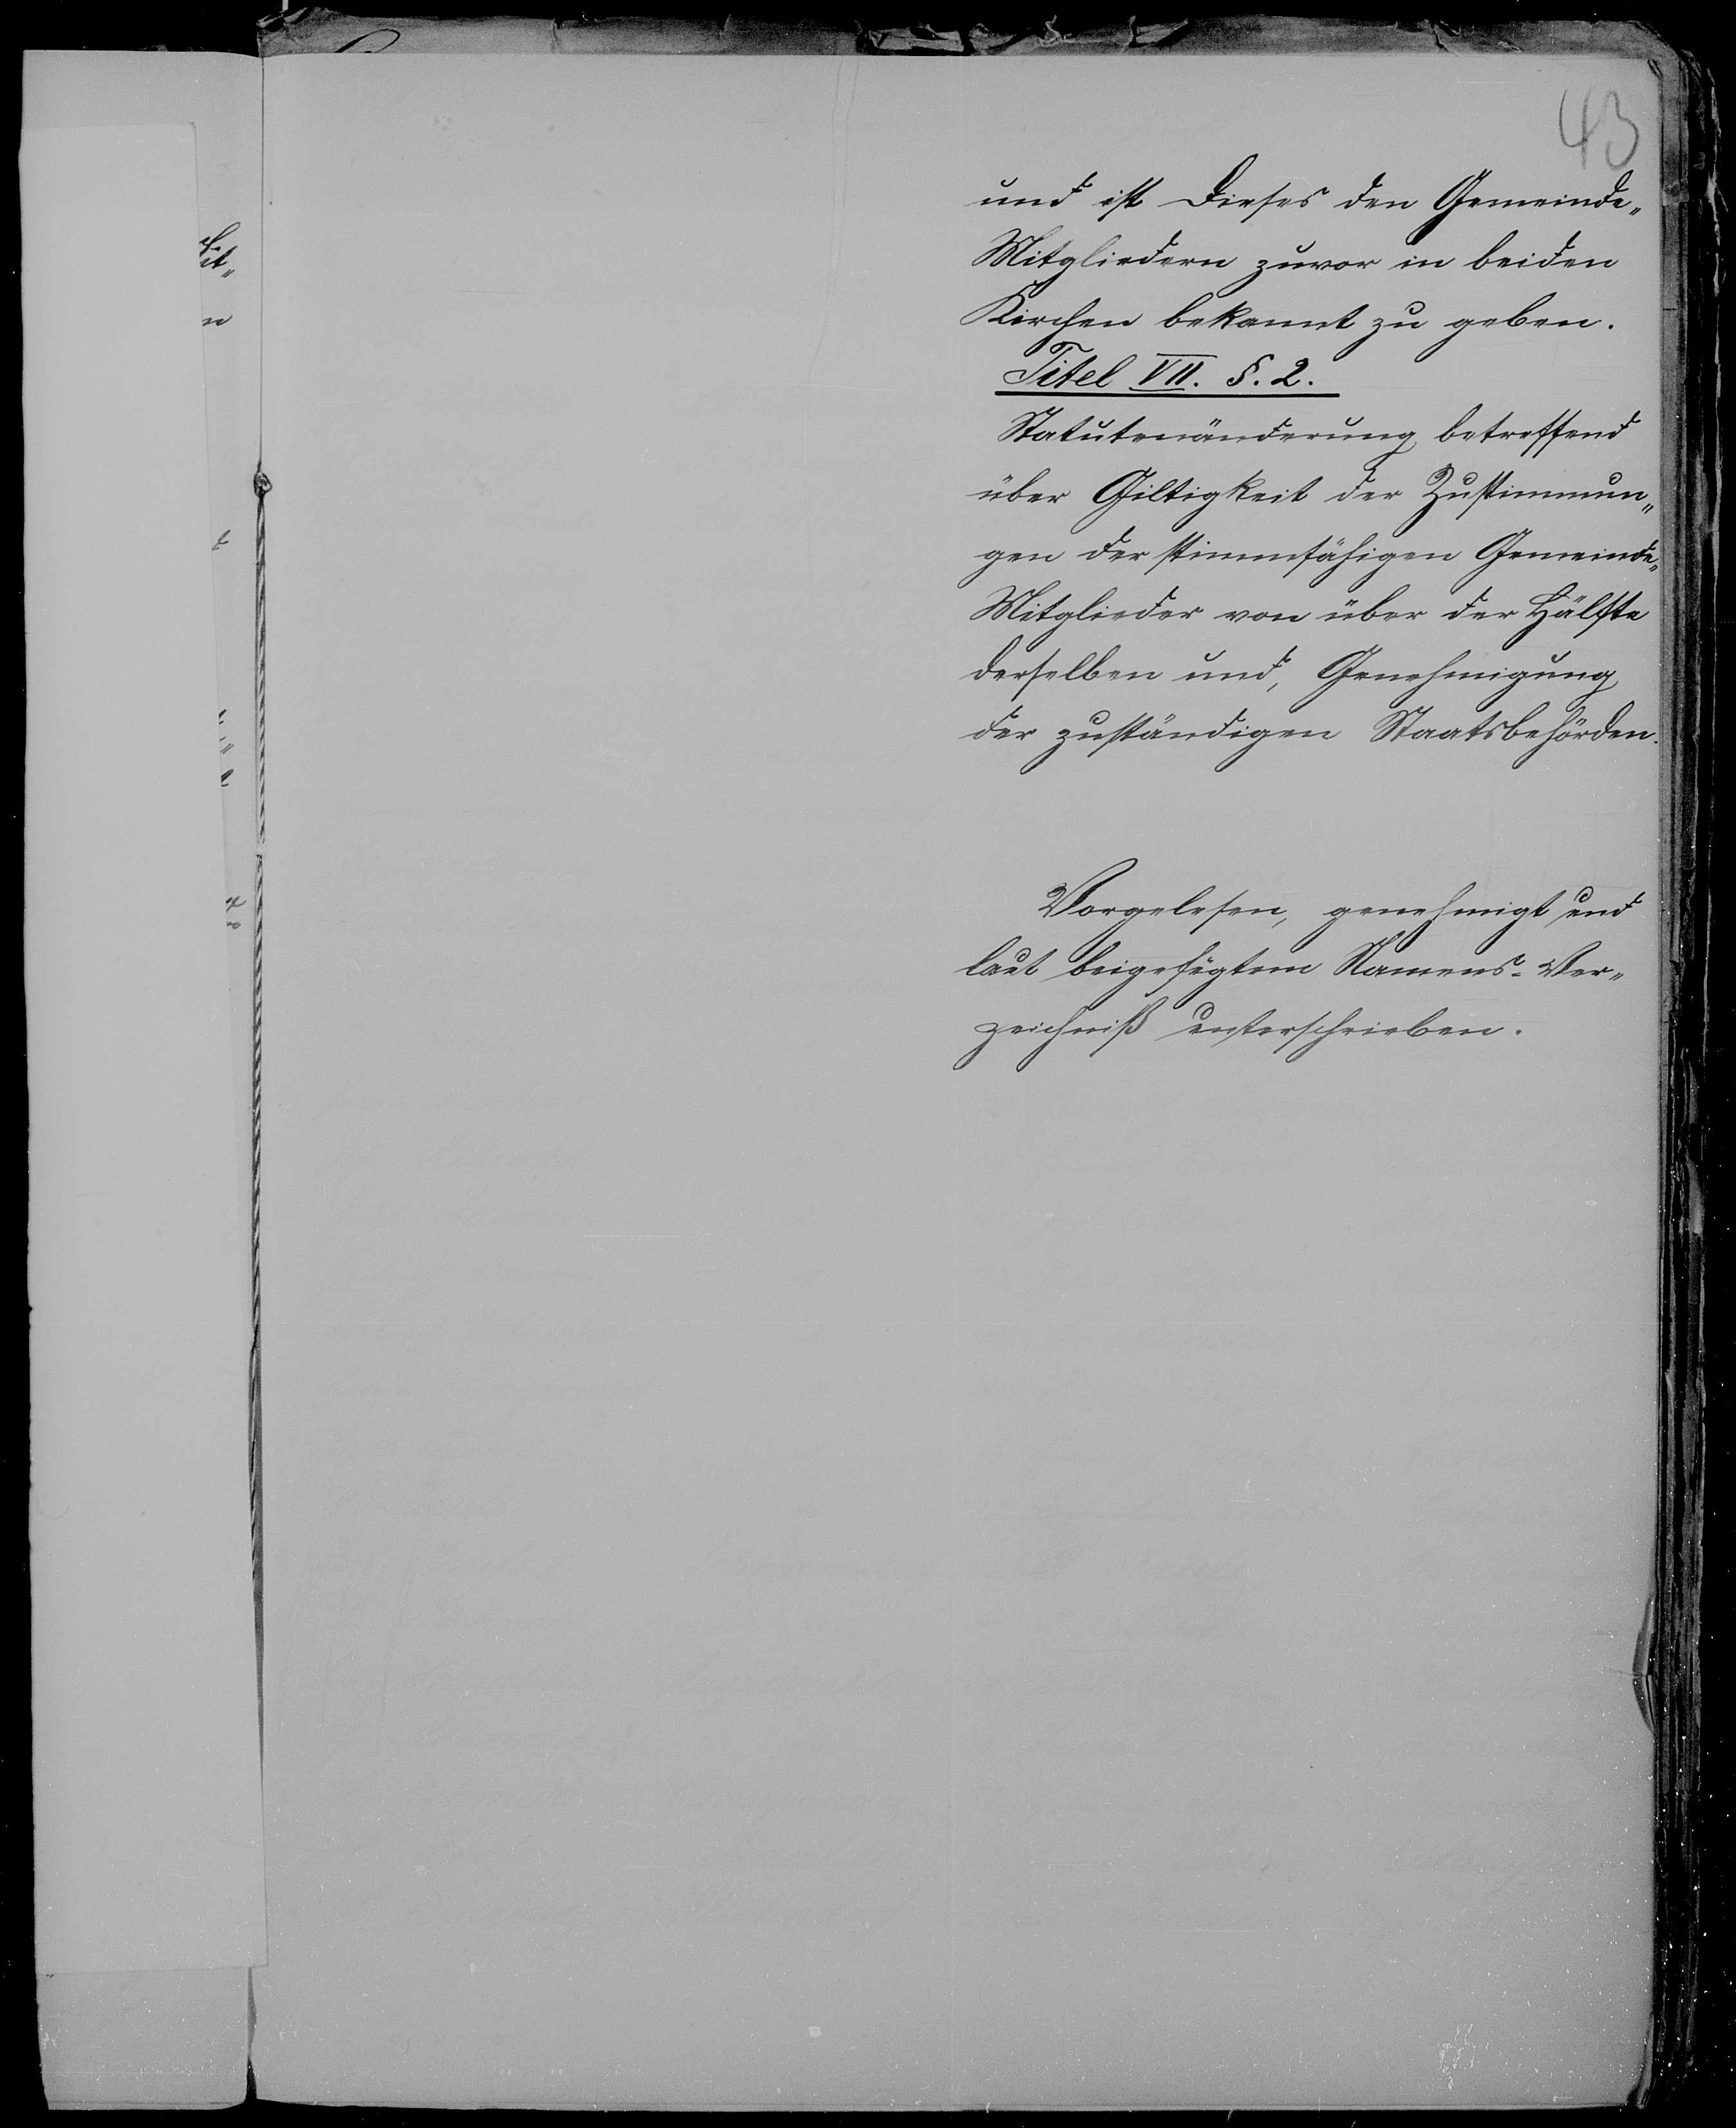 43
und ist Dieses den Gemeinde„
Mitgliedern zuvor in beiden
Kirchen bekannt zu geben.
Titel VII. §. 2.
Statutenänderung betreffend
über Giltigkeit der Zustimmun„
gen der stimmfähigen Gemeinde„
Mitglieder von über der Hälfte
derselben und, Genehmigung
der zuständigen Staatsbehörden.
Vorgelesen, genehmigt und
laut beigefügtem Namens-Ver„
zeichniß unterschrieben.